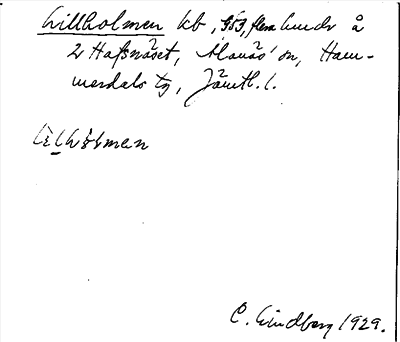 Lillholmen kb, 353, flera kundr å
2 Hafsnäset, Alanäs' sn, Ham-
merdals tg, Jämtl. l.
C. Lindberg 1929.